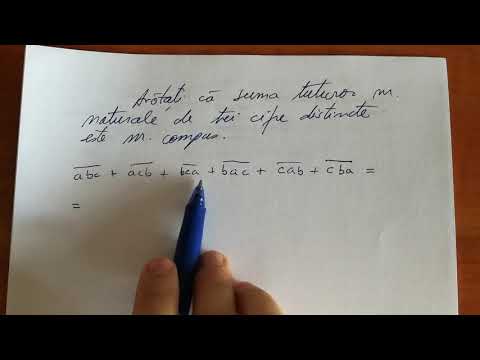 Arătați că suma tuturor nr.
naturale de trei cifre distincte
este nr. compus.
abc + acb + bca + bac + cab + cba =
=